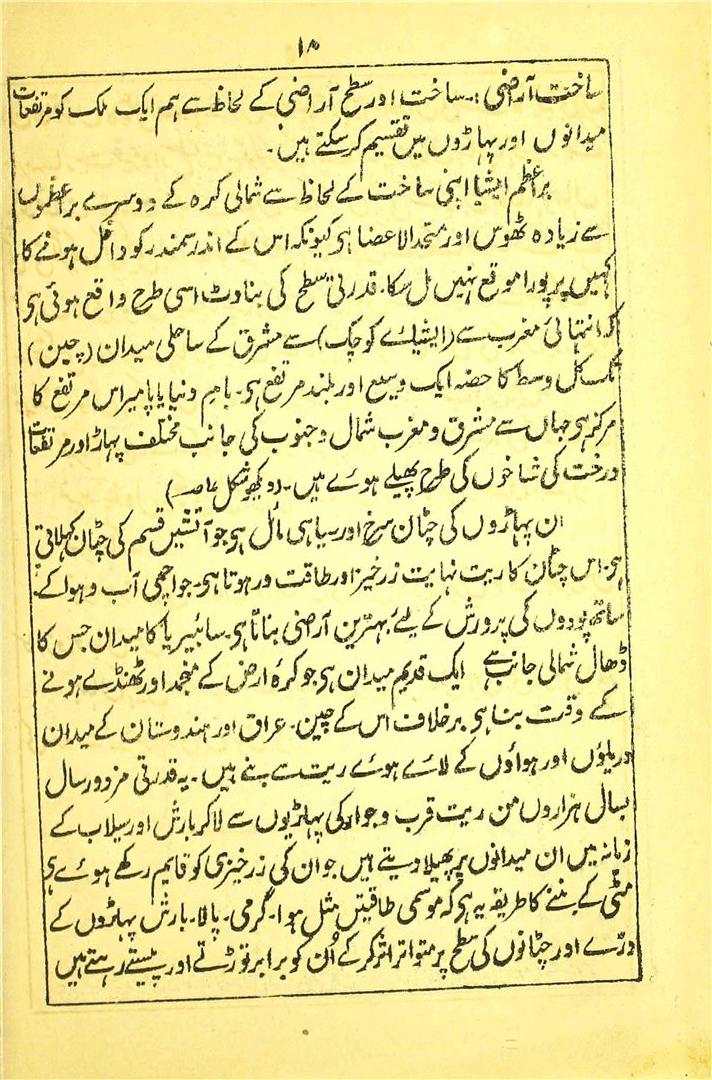 ۱۸
ساخت آراضی:۔ ساخت اور سطح آراضی کے لحاظ سے ہم ایک ملک کو مرتفعات
میدانوں اور پہاڑوں میں تقسیم کر سکتے ہیں۔
براعظم ایشیا اپنی ساخت کے لحاظ سے شمالی کرہ کے دوسرے براعظموں
سے زیادہ ٹھوس اور متحدالاعضا ہی کیونکہ اس کے اندر سمندر کو داخل ہونے کا
کہیں پر پورا موقع نہیں مل سکا۔ قدرتی سطح کی بناوٹ اسی طرح واقع ہوئی ہی
کہ انتہائی مغرب سے (ایشیائے کوچک) سے مشرق کے ساحلی میدان (چین)
تک کل وسط کا حصہ ایک وسیع اور بلند مرتفع ہی۔ بام دنیا یا پامیر اس مرتفع کا
مرکز ہی جہاں سے مشرق و مغرب شمال و جنوب کی جانب مختلف پہاڑ اور مرتفعات
درخت کی شاخوں کی طرح پھیلے ہوئے ہیں۔ (دیکھو شکل
ان پہاڑوں کی چٹان سرخ اور سیاہی مائل ہی جو آتشیں قسم کی چٹان کہلاتی
ہی۔ اس چٹان کا ریت نہایت زرخیز اور طاقت ور ہوتا ہی۔ جو اچھی آب و ہوا کے
ساتھ پودوں کی پرورش کے لیئے بہترین آراضی بناتا ہی۔ سائبیریا کا میدان جس کا
ڈھال شمالی جانب ہے ایک قدیم میدان ہی جو کرۂ ارض کے منجمد اور ٹھنڈے ہونے
کے وقت بنا ہی برخلاف اس کے چین۔ عراق اور ہندوستان کے میدان
دریاؤں اور ہواؤں کے لائے ہوئے ریت سے بنے ہیں۔ یہ قدرتی مزدور سال
بسال ہزاروں من ریت قرب و جوار کی پہاڑیوں سے لا کر بارش اور سیلاب کے
زمانہ میں ان میدانوں پر پھیلا دیتے ہیں جو ان کی زرخیزی کو قایم رکھے ہوئے ہی
مٹی کے بننے کا طریقہ یہ ہی کہ موسمی طاقتیں مثل ہوا۔ گرمی۔ پالا۔ بارش پہاڑوں کے
درّے اور چٹانوں کی سطح پر متواتر اثر کر کے اُن کو برابر توڑتے اور پیستے رہتے ہیں